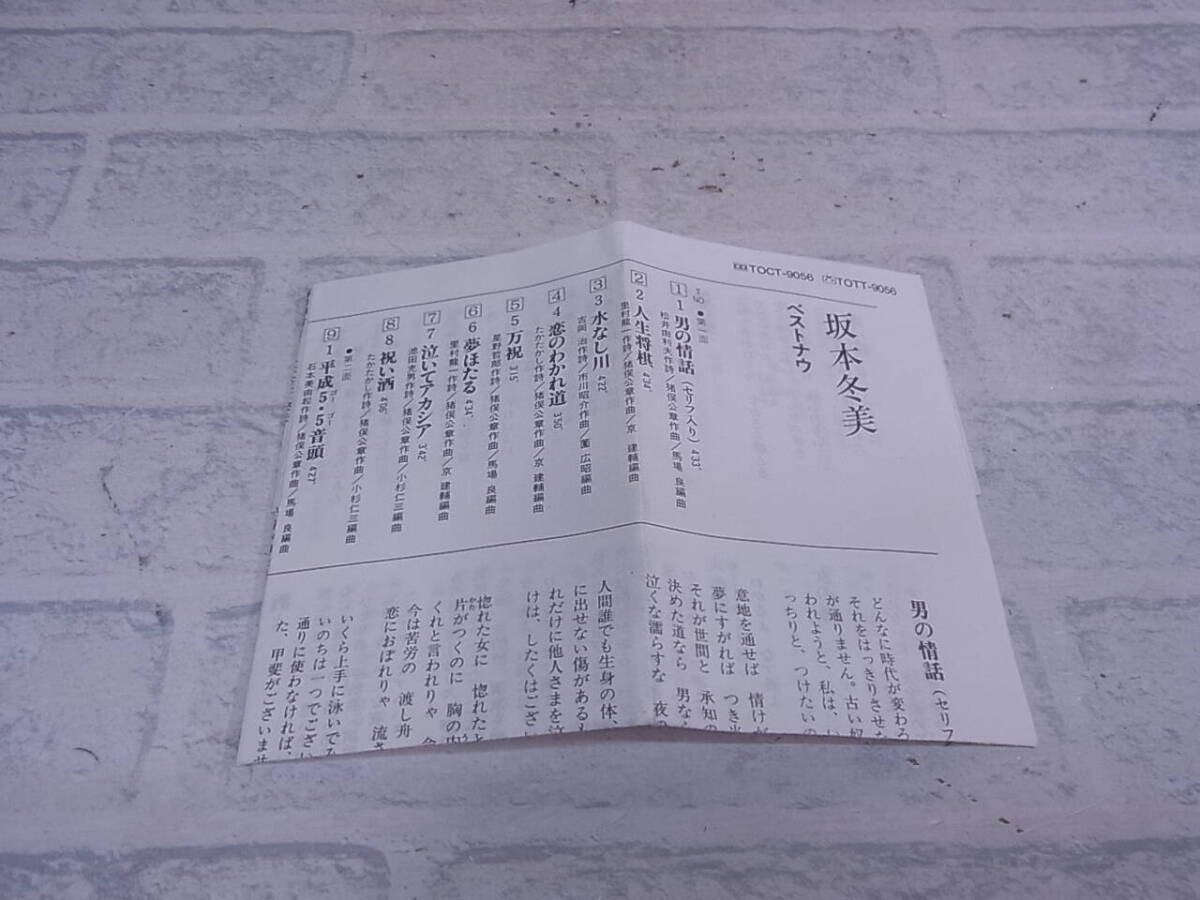 TOCT-9056 TOTT-9056
坂本冬美
ベストナウ
●第一面
1 1 男の情話(セリフ入り) 4'33"
松井由利夫作詩/猪俣公章作曲/馬場 良編曲
2 2 人生将棋 4'34"
里村龍一作詩/猪俣公章作曲/京 建輔編曲
3 3 水なし川 4'22"
吉岡 治作詩/市川昭介作曲/薗 広昭編曲
4 4 恋のわかれ道 3'50"
たかたかし作詩/猪俣公章作曲/京 建輔編曲
5 5 万祝 3'15"
星野哲郎作詩/猪俣公章作曲/馬場 良編曲
6 6 夢ほたる 4'34"
里村龍一作詩/猪俣公章作曲/京 建輔編曲
7 7 泣いてアカシア 3'42"
池田充男作詩/猪俣公章作曲/小杉仁三編曲
8 8 祝い酒 4'06"
たかたかし作詩/猪俣公章作曲/小杉仁三編曲
●第二面
9 1 平成5・5音頭 4'27"
ゴー ゴー
石本美由起作詩/猪俣公章作曲/馬場 良編曲
男の情話(セリフ
どんなに時代が変わろ
それをはっきりさせな
が通りません。古い奴
われようと、私は、い
っちりと、つけたいの
意地を通せば 情けが
夢にすがれば つき当
それが世間と 承知の
決めた道なら 男な
泣くな濡らすな 夜の
人間誰でも生身の体、
に出せない傷があるも
れだけに他人さまを泣
けは、したくはござい
惚れた女に 惚れたと
片がつくのに 胸の内
かた
くれと言われりゃ 今
今は苦労の 渡し舟
恋におぼれりゃ 流さ
いくら上手に泳いでみ
いのちは一つでござい
通りに使わなければ、
た、甲斐がございませ